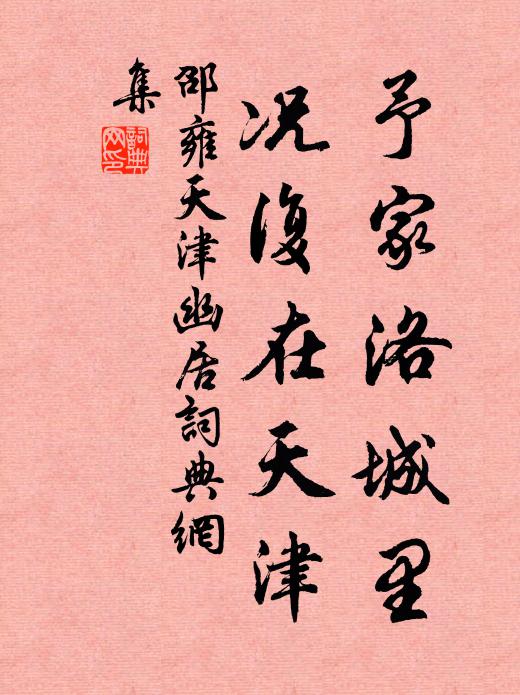 予家洛城里
况復在天津
邵雍天津幽居詞典網
集
詞典網印